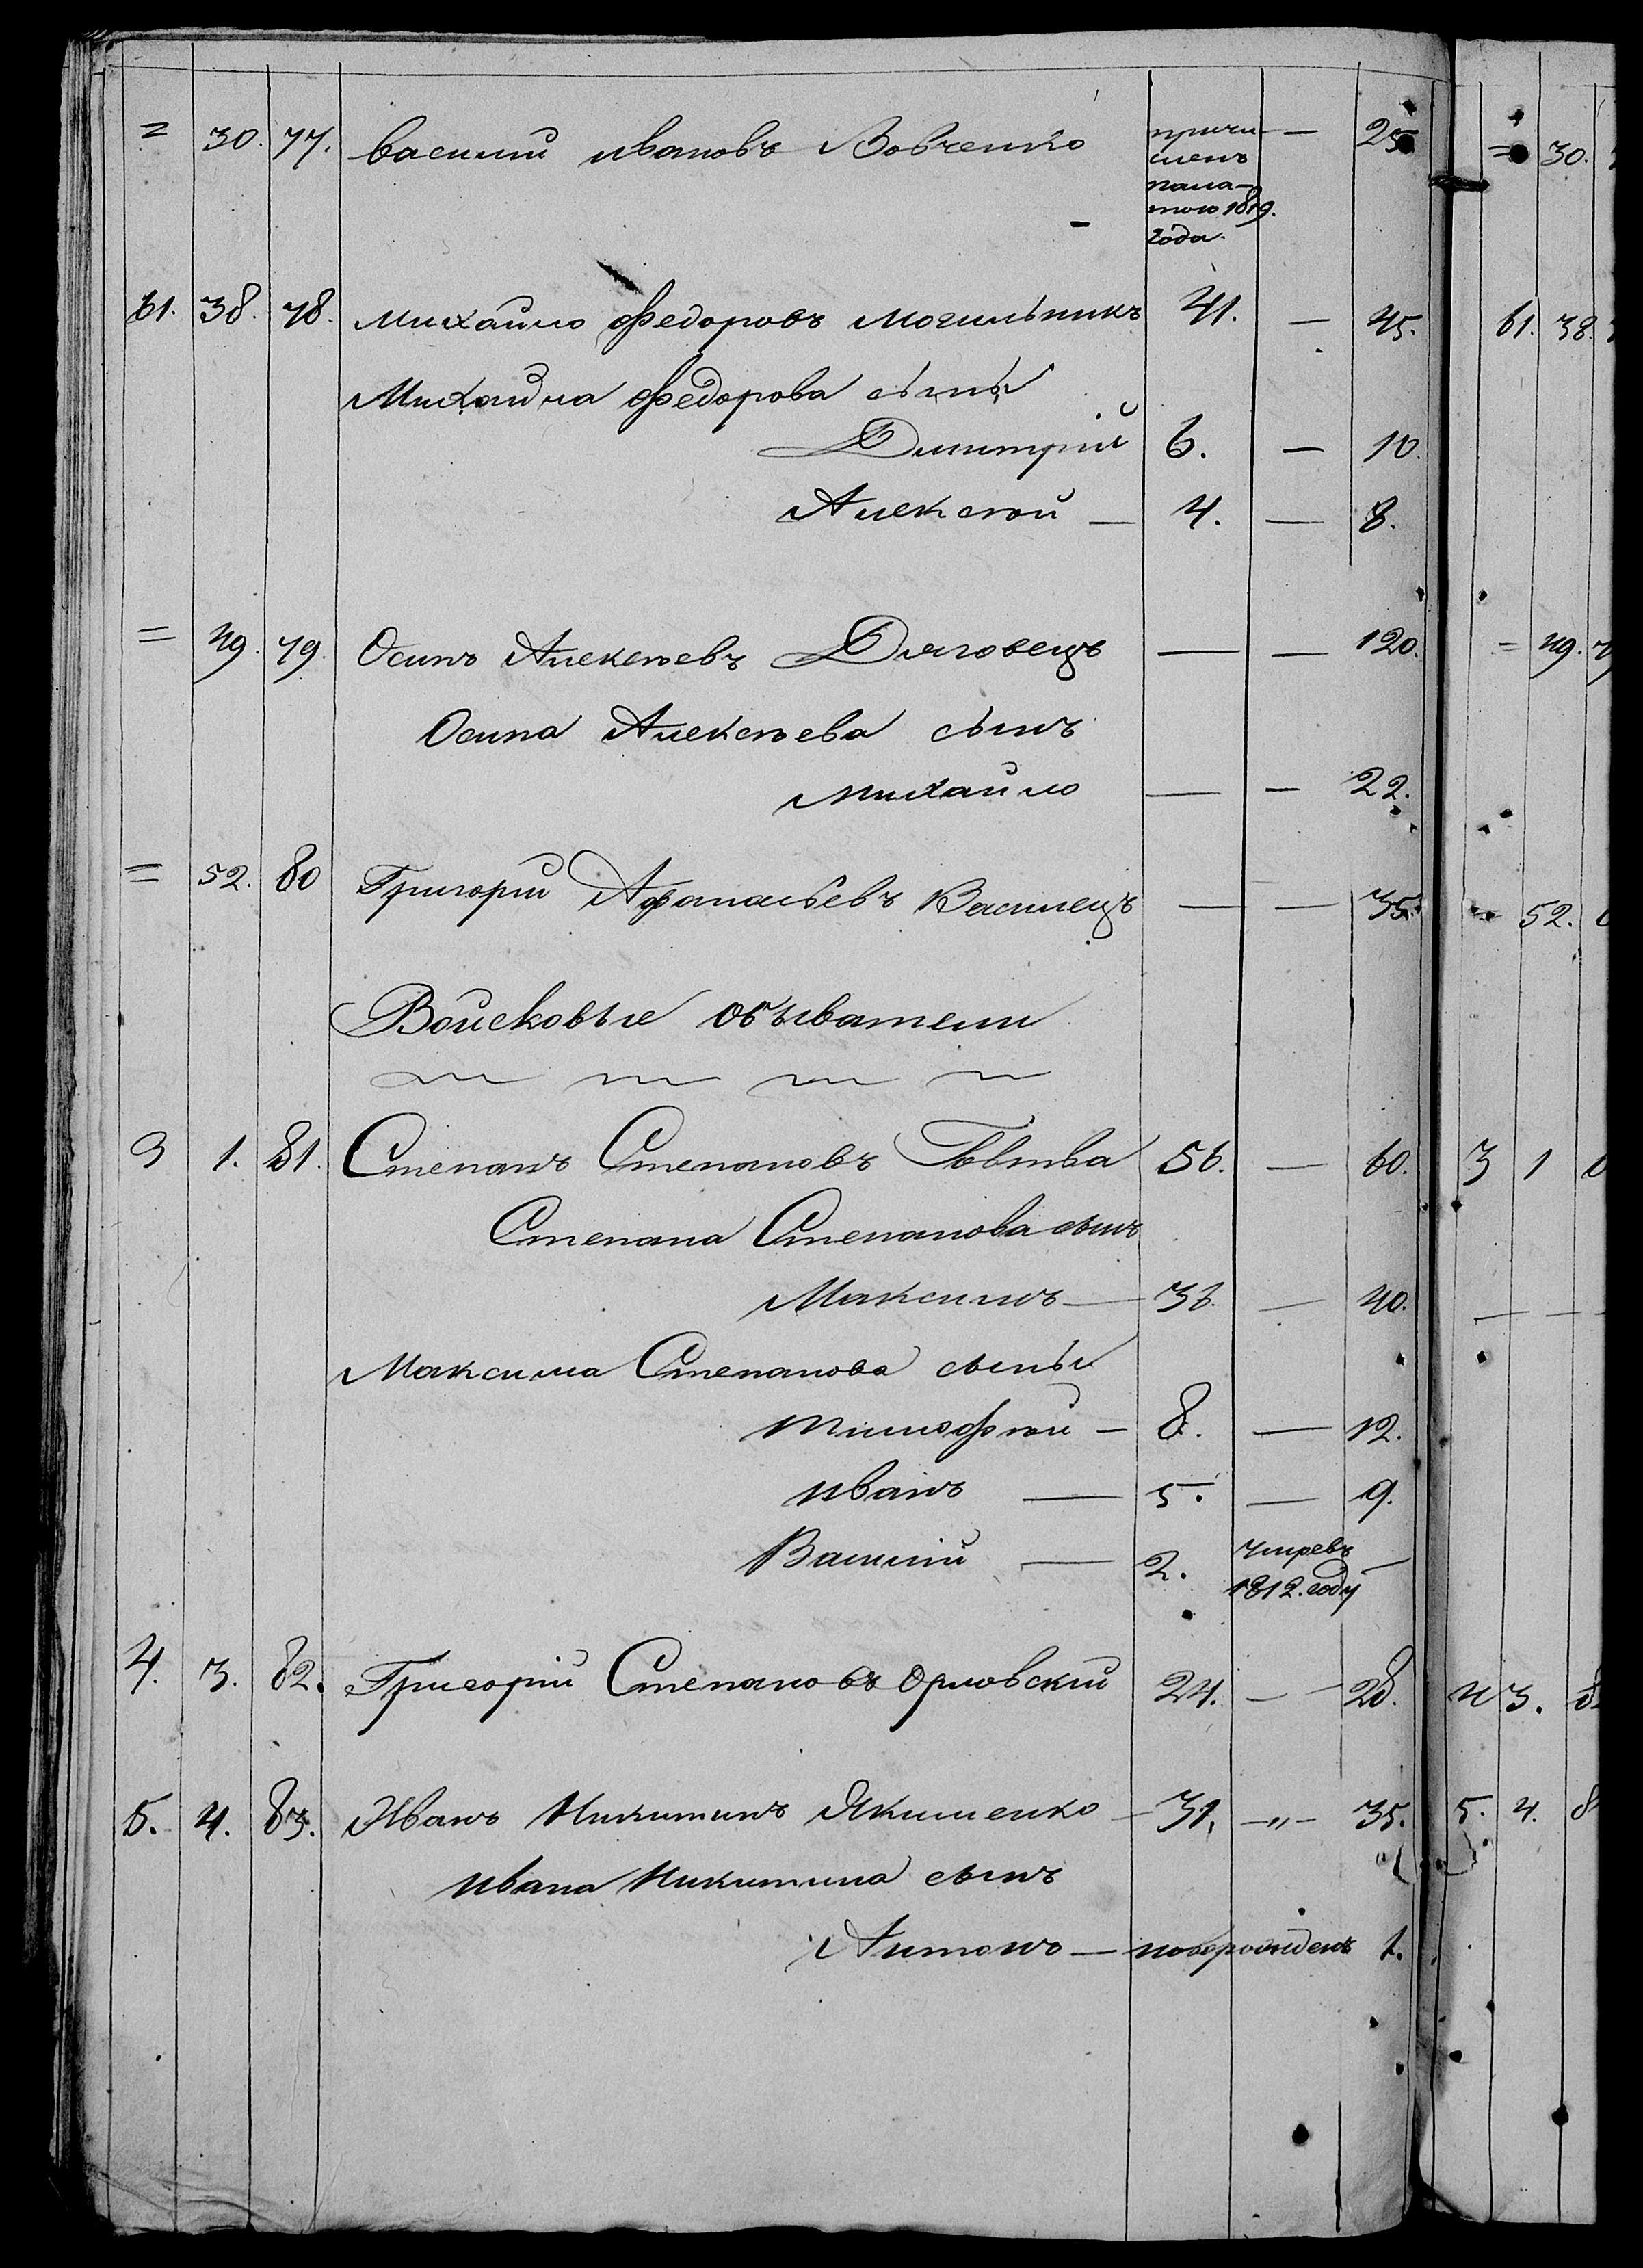 = 30. 77. василий ивановъ Вовченко причи- — 25
сленъ
пала-
тою 1819.
года.
61. 38. 78. михайло федоровъ могильникъ 41. — 45.
Михайла федорова сыны
Дмитрій 6. — 10.
Алексей — 4. — 8.
= 49. 79. Осипъ Алексѣевъ — — 120.
Осипа Алексѣева сынъ
михайло — — 22.
= 52. 80 Григорій Афанасьевъ Василецъ — — 35.
Войсковые обыватели
3 1. 81. Степанъ Степановъ 56. — 60.
Степана Степанова сынъ
Максимъ — 36. — 40.
Максима Степанова сыны
тимофей — 8. — 12.
иванъ — 5. — 9.
Василій — 2. умревъ —
1812. году
4. 3. 82. Григорій Степановъ Орловский 24. — 28.
5. 4. 83. Иванъ Никитинъ Якименко — 31. —„— 35.
ивана Никитина сынъ
Антонъ — новорожденъ 1.
= 30.
61. 38.
= 49.
= 52.
3 1
4 3.
5. 4. 8